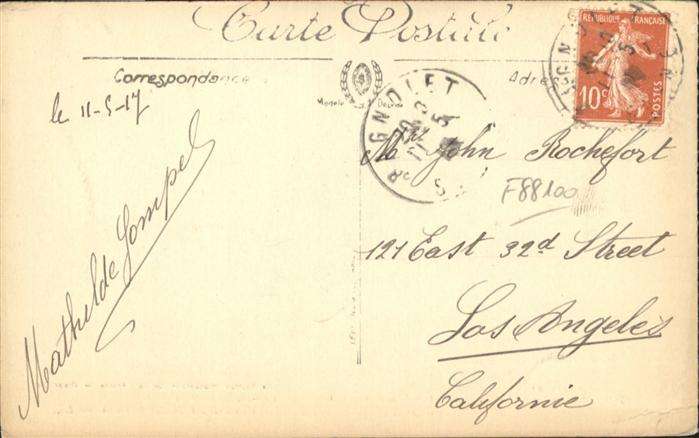 Carte Postale
Correspondance
Adre
Modèle Déposé
le 11-5-17
Mathilde Gompel
BAGNOLET
RÉPUBLIQUE FRANÇAISE
10c
POSTES
Mr John Rochefort
F88100
121 East 32d Street
Los Angeles
Californie